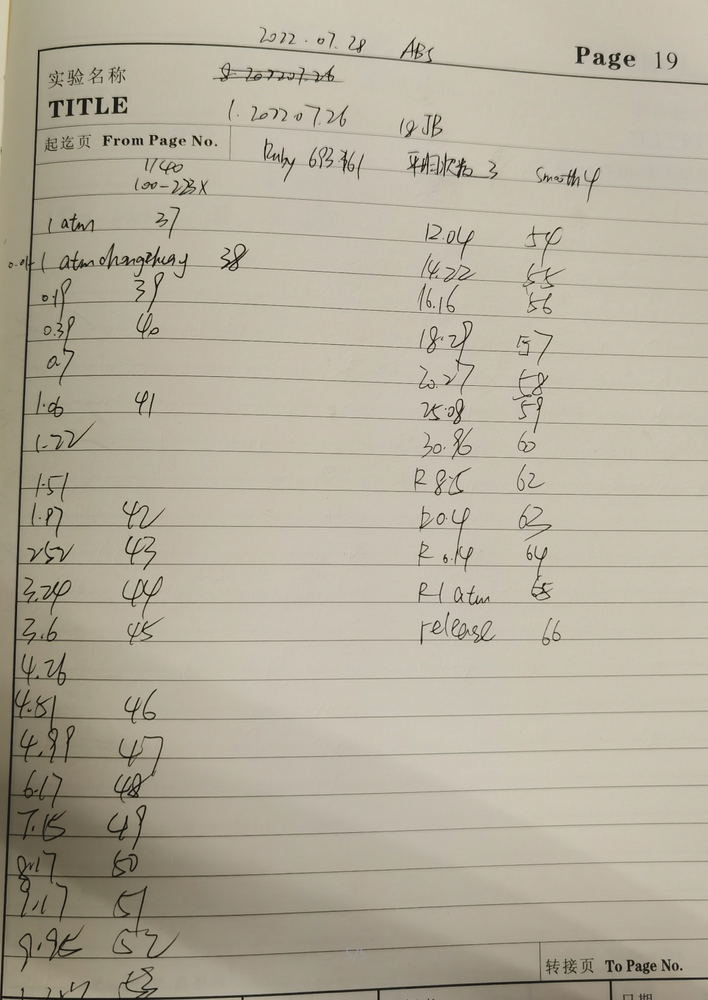 2022.07.28 ABS
Page 19
实验名称
8. 202207.26
TITLE
1. 202207.26 18JB
起迄页 From Page No.
Ruby 693.361 平均次数 3 Smooth 4
1/40
100-223X
1 atm 37
1 atm 38
0.19 39
0.39 40
0.7
1.06 41
1.22
1.51
1.97 42
2.52 43
3.24 44
3.6 45
4.26
4.51 46
4.99 47
6.17 48
7.15 49
8.17 50
9.17 51
9.95 52
53
12.04 54
14.22 55
16.16 56
18.29 57
20.27 58
25.08 59
30.96 60
R 8.5 62
R 0.4 63
R 0.14 64
R 1 atm 65
release 66
转接页 To Page No.
日期